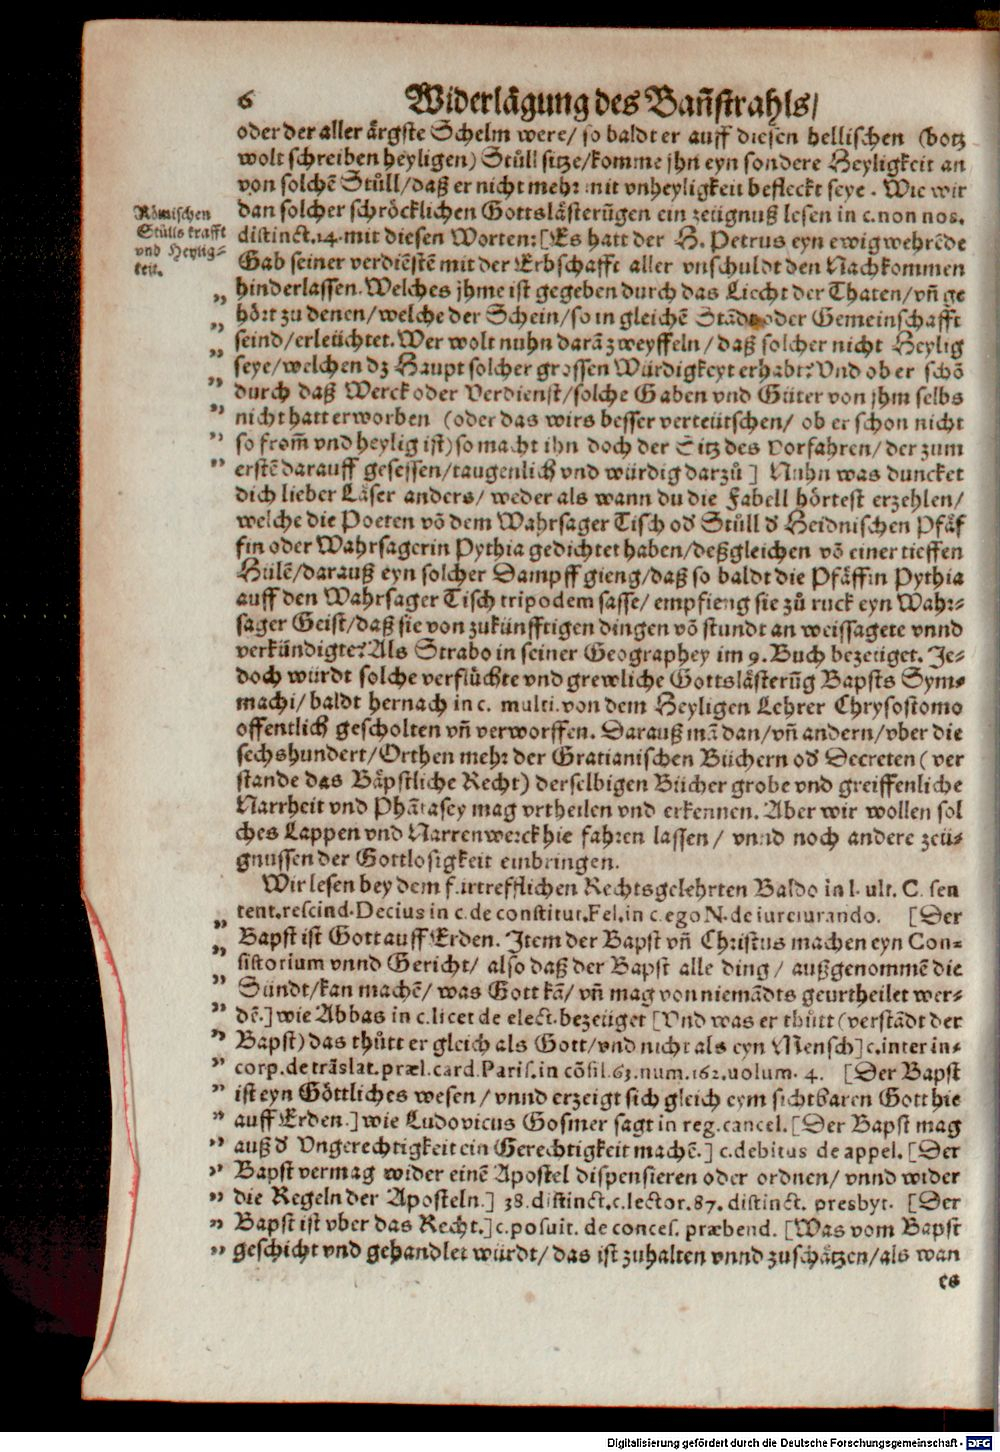 6 Widerlägung des Bañstrahls/
oder der aller ärgste Schelm were/ so baldt er auff diesen hellischen (botz
wolt schreiben heyligen) Stůll sitze/komme jhn eyn sondere Heyligkeit an
von solchē Stůll/daß er nicht mehr mit vnheyligkeit befleckt seye. Wie wir
dan solcher schröcklichen Gottslästerũgen ein zeügnuß lesen in c. non nos.
Römischen
Stůlls krafft
vnd Heylig-
keit.
distinct.14. mit diesen Worten: [Es hatt der H. Petrus eyn ewigwehrēde
Gab seiner verdiēstē mit der Erbschafft aller vnschuldt den Nachkommen
hinderlassen. Welches jhme ist gegeben durch das Liecht der Thaten/vñ ge
hört zu denen/welche der Schein/so in gleichē Stādt oder Gemeinschafft
seind/erleüchtet. Wer wolt nuhn darā zweyffeln/ daß solcher nicht Heylig
seye/welchen dz Haupt solcher grossen Würdigkeyt erhabt? Vnd ob er schō
durch daß Werck oder Verdienst/solche Gaben vnd Güter von jhm selbs
nicht hatt erworben (oder das wirs besser verteütschen/ ob er schon nicht
so from̃ vnd heylig ist) so macht ihn doch der Sitz des Vorfahren/ der zum
erstē darauff gesessen/taugenlich vnd würdig darzů] Nuhn was duncket
dich lieber Läser anders/ weder als wann du die Fabell hörtest erzehlen/
welche die Poeten vō dem Wahrsager Tisch od Stůll d Heidnischen Pfäf
fin oder Wahrsagerin Pythia gedichtet haben/deßgleichen vō einer tieffen
Hülē/darauß eyn solcher Dampff gieng/daß so baldt die Pfäffin Pythia
auff den Wahrsager Tisch tripodem sasse/ empfieng sie zů ruck eyn Wahr-
sager Geist/daß sie von zukünfftigen dingen vō stundt an weissagete vnnd
verkündigte? Als Strabo in seiner Geographey im 9. Buch bezeüget. Je-
doch würdt solche verflüchte vnd grewliche Gottslästerũg Bapsts Sym-
machi/ baldt hernach in c. multi. von dem Heyligen Lehrer Chrysostomo
offentlich gescholten vñ verworffen. Darauß mā dan/vñ andern/vber die
sechshundert/Orthen mehr der Gratianischen Büchern od Decreten (ver
stande das Bäpstliche Recht) derselbigen Bücher grobe vnd greiffenliche
Narrheit vnd Phātasey mag vrtheilen vnd erkennen. Aber wir wollen sol
ches Lappen vnd Narrenwerck hie fahren lassen/ vnnd noch andere zeü-
gnussen der Gottlosigkeit einbringen.
Wir lesen bey dem fürtrefflichen Rechtsgelehrten Baldo in l. ult. C. sen
tent. rescind. Decius in c. de constitut. Fel. in c. ego N. de iureiurando. [Der
Bapst ist Gott auff Erden. Item der Bapst vñ Christus machen eyn Con-
sistorium vnnd Gericht/ also daß der Bapst alle ding/ außgenommē die
Sündt/kan machē/ was Gott kā/ vñ mag von niemādts geurtheilet wer-
dē.] wie Abbas in c. licet de elect. bezeüget [Vnd was er thůtt (verstādt der
Bapst) das thůtt er gleich als Gott/vnd nicht als eyn Mensch] c. inter in-
corp. de trāslat. præl. card. Paris. in cōsil. 63. num. 162. uolum. 4. [Der Bapst
ist eyn Göttliches wesen/ vnnd erzeigt sich gleich eym sichtbaren Gott hie
auff Erden.] wie Ludovicus Gosmer sagt in reg. cancel. [Der Bapst mag
auß d Vngerechtigkeit ein Gerechtigkeit machē.] c. debitus de appel. [Der
Bapst vermag wider einē Apostel dispensieren oder ordnen/ vnnd wider
die Regeln der Aposteln.] 38. distinct. c. lector. 87. distinct. presbyt. [Der
Bapst ist vber das Recht.] c. posuit. de conces. præbend. [Was vom Bapst
geschicht vnd gehandlet würdt/ das ist zuhalten vnnd zuschätzen/als wan
es
Digitalisierung gefördert durch die Deutsche Forschungsgemeinschaft - DFG